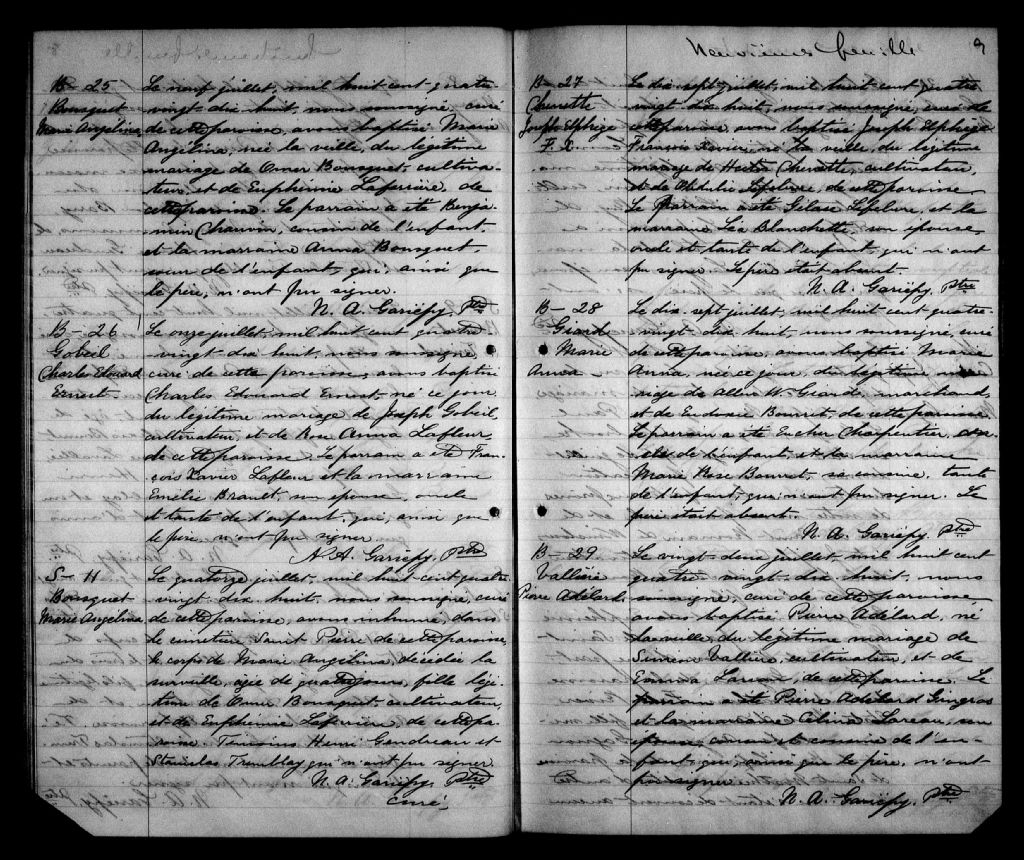 B - 25
Bousquet
Marie Angelina
Le neuf juillet, mil huit cent quatre
vingt dix huit, nous soussigné, curé
de cette paroisse, avons baptisé Marie
Angélina, née la veille, du légitime
mariage de Omer Bousquet, cultiva-
teur, et de Euphémie Laferrière, de
cette paroisse. Le parrain a été Benja
min Chauvin, cousin de l'enfant
et la marraine Anna Bousquet
sœur de l'enfant, qui, ainsi que
le père, n'ont pu signer.
N. A. Gariépy, Ptre
B - 26
Gobeil
Charles Edouard
Ernest -
Le onze juillet, mil huit cent quatre
vingt dix huit, nous soussigné,
curé de cette paroisse, avons baptisé
Charles Edouard Ernest, né ce jour
du légitime mariage de Joseph Gobeil,
cultivateur, et de Rose Anna Lafleur,
de cette paroisse. Le parrain a été Fran
çois Xavier Lafleur et la marraine
Emélie Brault, son épouse, oncle
et tante de l'enfant, qui, ainsi que
le père, n'ont pu signer
N. A. Gariépy, Ptre
S - 11
Bousquet
Marie Angelina
Le quatorze juillet, mil huit cent quatre
vingt dix huit, nous soussigné, curé
de cette paroisse, avons inhumé, dans
le cimetière Saint Pierre de cette paroisse,
le corps de Marie Angélina, décédée la
surveille, agée de quatre jours, fille légi
time de Omer Bousquet, cultivateur,
et de Euphémie Laferrière, de cette pa
roisse. Témoins Henri Gendreau et
Stanislas Tremblay qui n'ont pu signer
N. A. Gariépy, Ptre
curé,
Neuvième feuille
9
B - 27
Chenette
Joseph Elphège
F. X.
Le dix-sept juillet, mil huit cent quatre
vingt dix huit, nous soussigné, curé de
cette paroisse, avons baptisé Joseph Elphège
François Xavier, né la veille, du légitime
mariage de Hector Chenette, cultivateur,
et de Lefebvre, de cette paroisse
Le parrain a été Gélase Lefebvre, et la
marraine Léa Blanchette, son épouse,
oncle et tante de l'enfant, qui n'ont
pu signer. Le père était absent.
N. A. Gariépy, Ptre
B - 28
Giard
Marie
Anna -
Le dix-sept juillet, mil huit cent quatre-
vingt dix huit, nous soussigné, curé
de cette paroisse, avons baptisé Marie
Anna, née ce jour, du légitime ma
riage de W. Giard, marchand,
et de Bourret, de cette paroisse
Le parrain a été Eucher Charpentier,
de l'enfant, et la marraine
Marie Rose Bourret, sa cousine, tante
de l'enfant, qui n'ont pu signer. Le
père était absent.
N. A. Gariépy, Ptre
B - 29
Vallière
Pierre Adélard.
Le vingt deux juillet, mil huit cent
quatre vingt dix huit, nous
soussigné, curé de cette paroisse
avons baptisé Pierre Adélard, né
la veille du légitime mariage de
Siméon Vallière, cultivateur, et de
Emma Lareau, de cette paroisse. Le
parrain a été Pierre Adélard Gingras
et la marraine Célina Lareau, son
épouse, cousin et cousine de l'en-
fant, qui, ainsi que le père, n'ont
pu signer.
N. A. Gariépy, Ptre